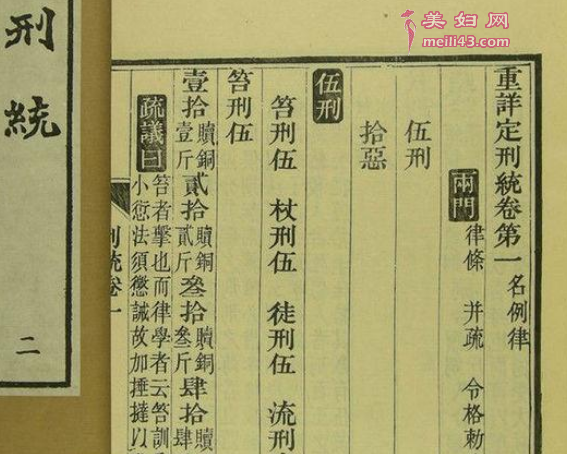 美妇网
meili43.com
重詳定刑統卷第一 名例律
兩門 律條 并疏 令格勅
伍刑
拾惡
伍刑
笞刑伍 杖刑伍 徒刑伍 流刑
笞刑伍
壹拾贖銅壹斤貳拾贖銅貳斤叄拾贖銅叄斤肆拾贖肆
疏議曰 笞者擊也而律學者云笞訓
小愆法須懲誡故加捶撻以
刑統卷一
刑統
二